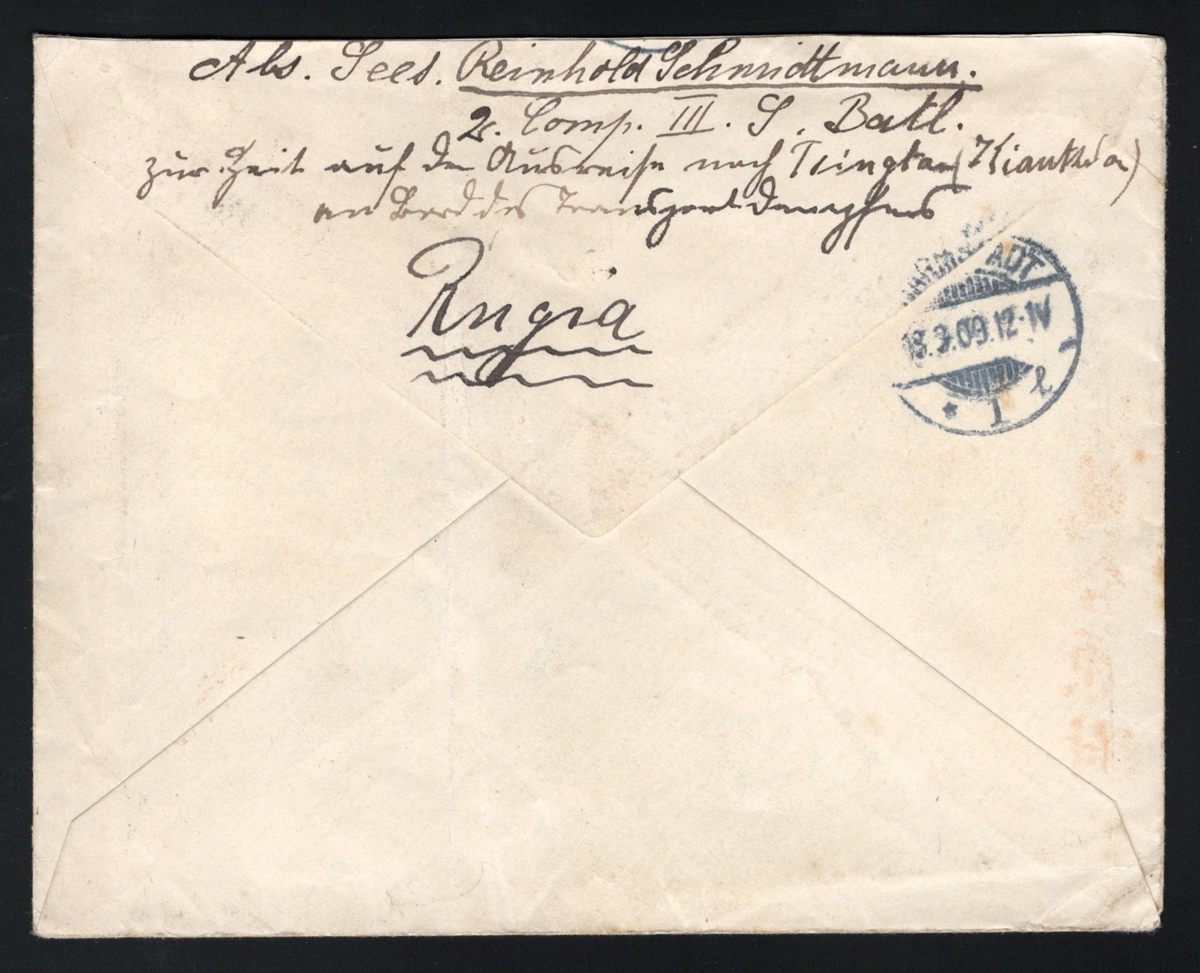 Abs. Sees. Reinhold Schmidtmann.
2. Comp. III. S. Batl.
zur Zeit auf der Ausreise nach Tsingtau (Kiautschou)
an Bord des Transportdampfers
Rugia
ADT
18.3.09.12-1N
* 1 l